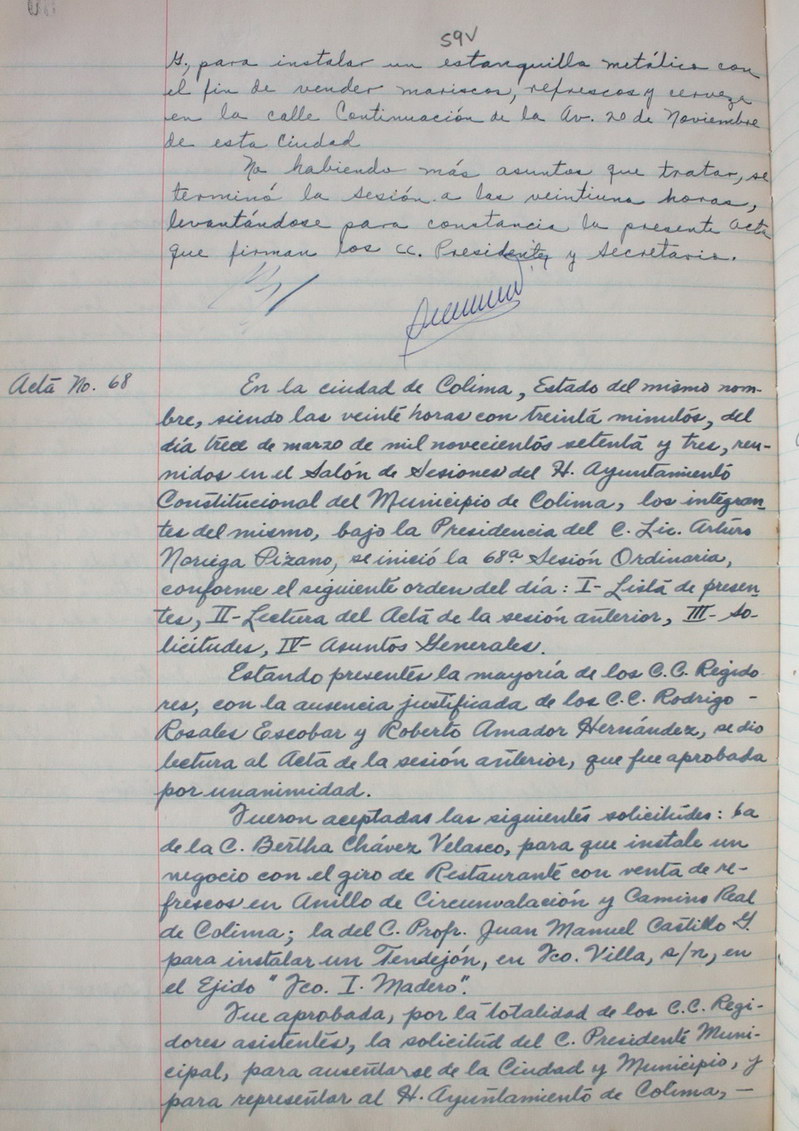 59V
G., para instalar un estanquillo metálico con
el fin de vender mariscos, refrescos y cerveza
en la calle Continuación de la Av. 20 de Noviembre
de esta Ciudad
No habiendo más asuntos que tratar, se
terminó la sesión a las veintiuna horas,
levantándose para constancia la presente acta
que firman los CC. Presidente y Secretario.
Acta No. 68
En la ciudad de Colima, Estado del mismo nom-
bre, siendo las veinte horas con treinta minutos, del
día trece de marzo de mil novecientos setenta y tres, reu-
nidos en el Salón de Sesiones del H. Ayuntamiento
Constitucional del Municipio de Colima, los integran-
tes del mismo, bajo la Presidencia del C. Lic. Arturo
Noriega Pizano, se inició la 68a Sesión Ordinaria,
conforme el siguiente orden del día: I- Lista de presen-
tes, II- Lectura del Acta de la sesión anterior, III- So-
licitudes, IV- Asuntos Generales.
Estando presentes la mayoría de los C.C. Regido
res, con la ausencia justificada de los C.C. Rodrigo -
Rosales Escobar y Roberto Amador Hernández, se dio
lectura al Acta de la sesión anterior, que fue aprobada
por unanimidad.
Fueron aceptadas las siguientes solicitudes: La
de la C. Bertha Chávez Velasco, para que instale un
negocio con el giro de Restaurante con venta de re-
frescos en Anillo de Circunvalación y Camino Real
de Colima; la del C. Profr. Juan Manuel Castillo G.
para instalar un Tendejón, en Fco. Villa, s/n, en
el Ejido "Fco. I. Madero".
Fue aprobada, por la totalidad de los C.C. Regi-
dores asistentes, la solicitud del C. Presidente Muni-
cipal, para ausentarse de la Ciudad y Municipio, y
para representar al H. Ayuntamiento de Colima, -